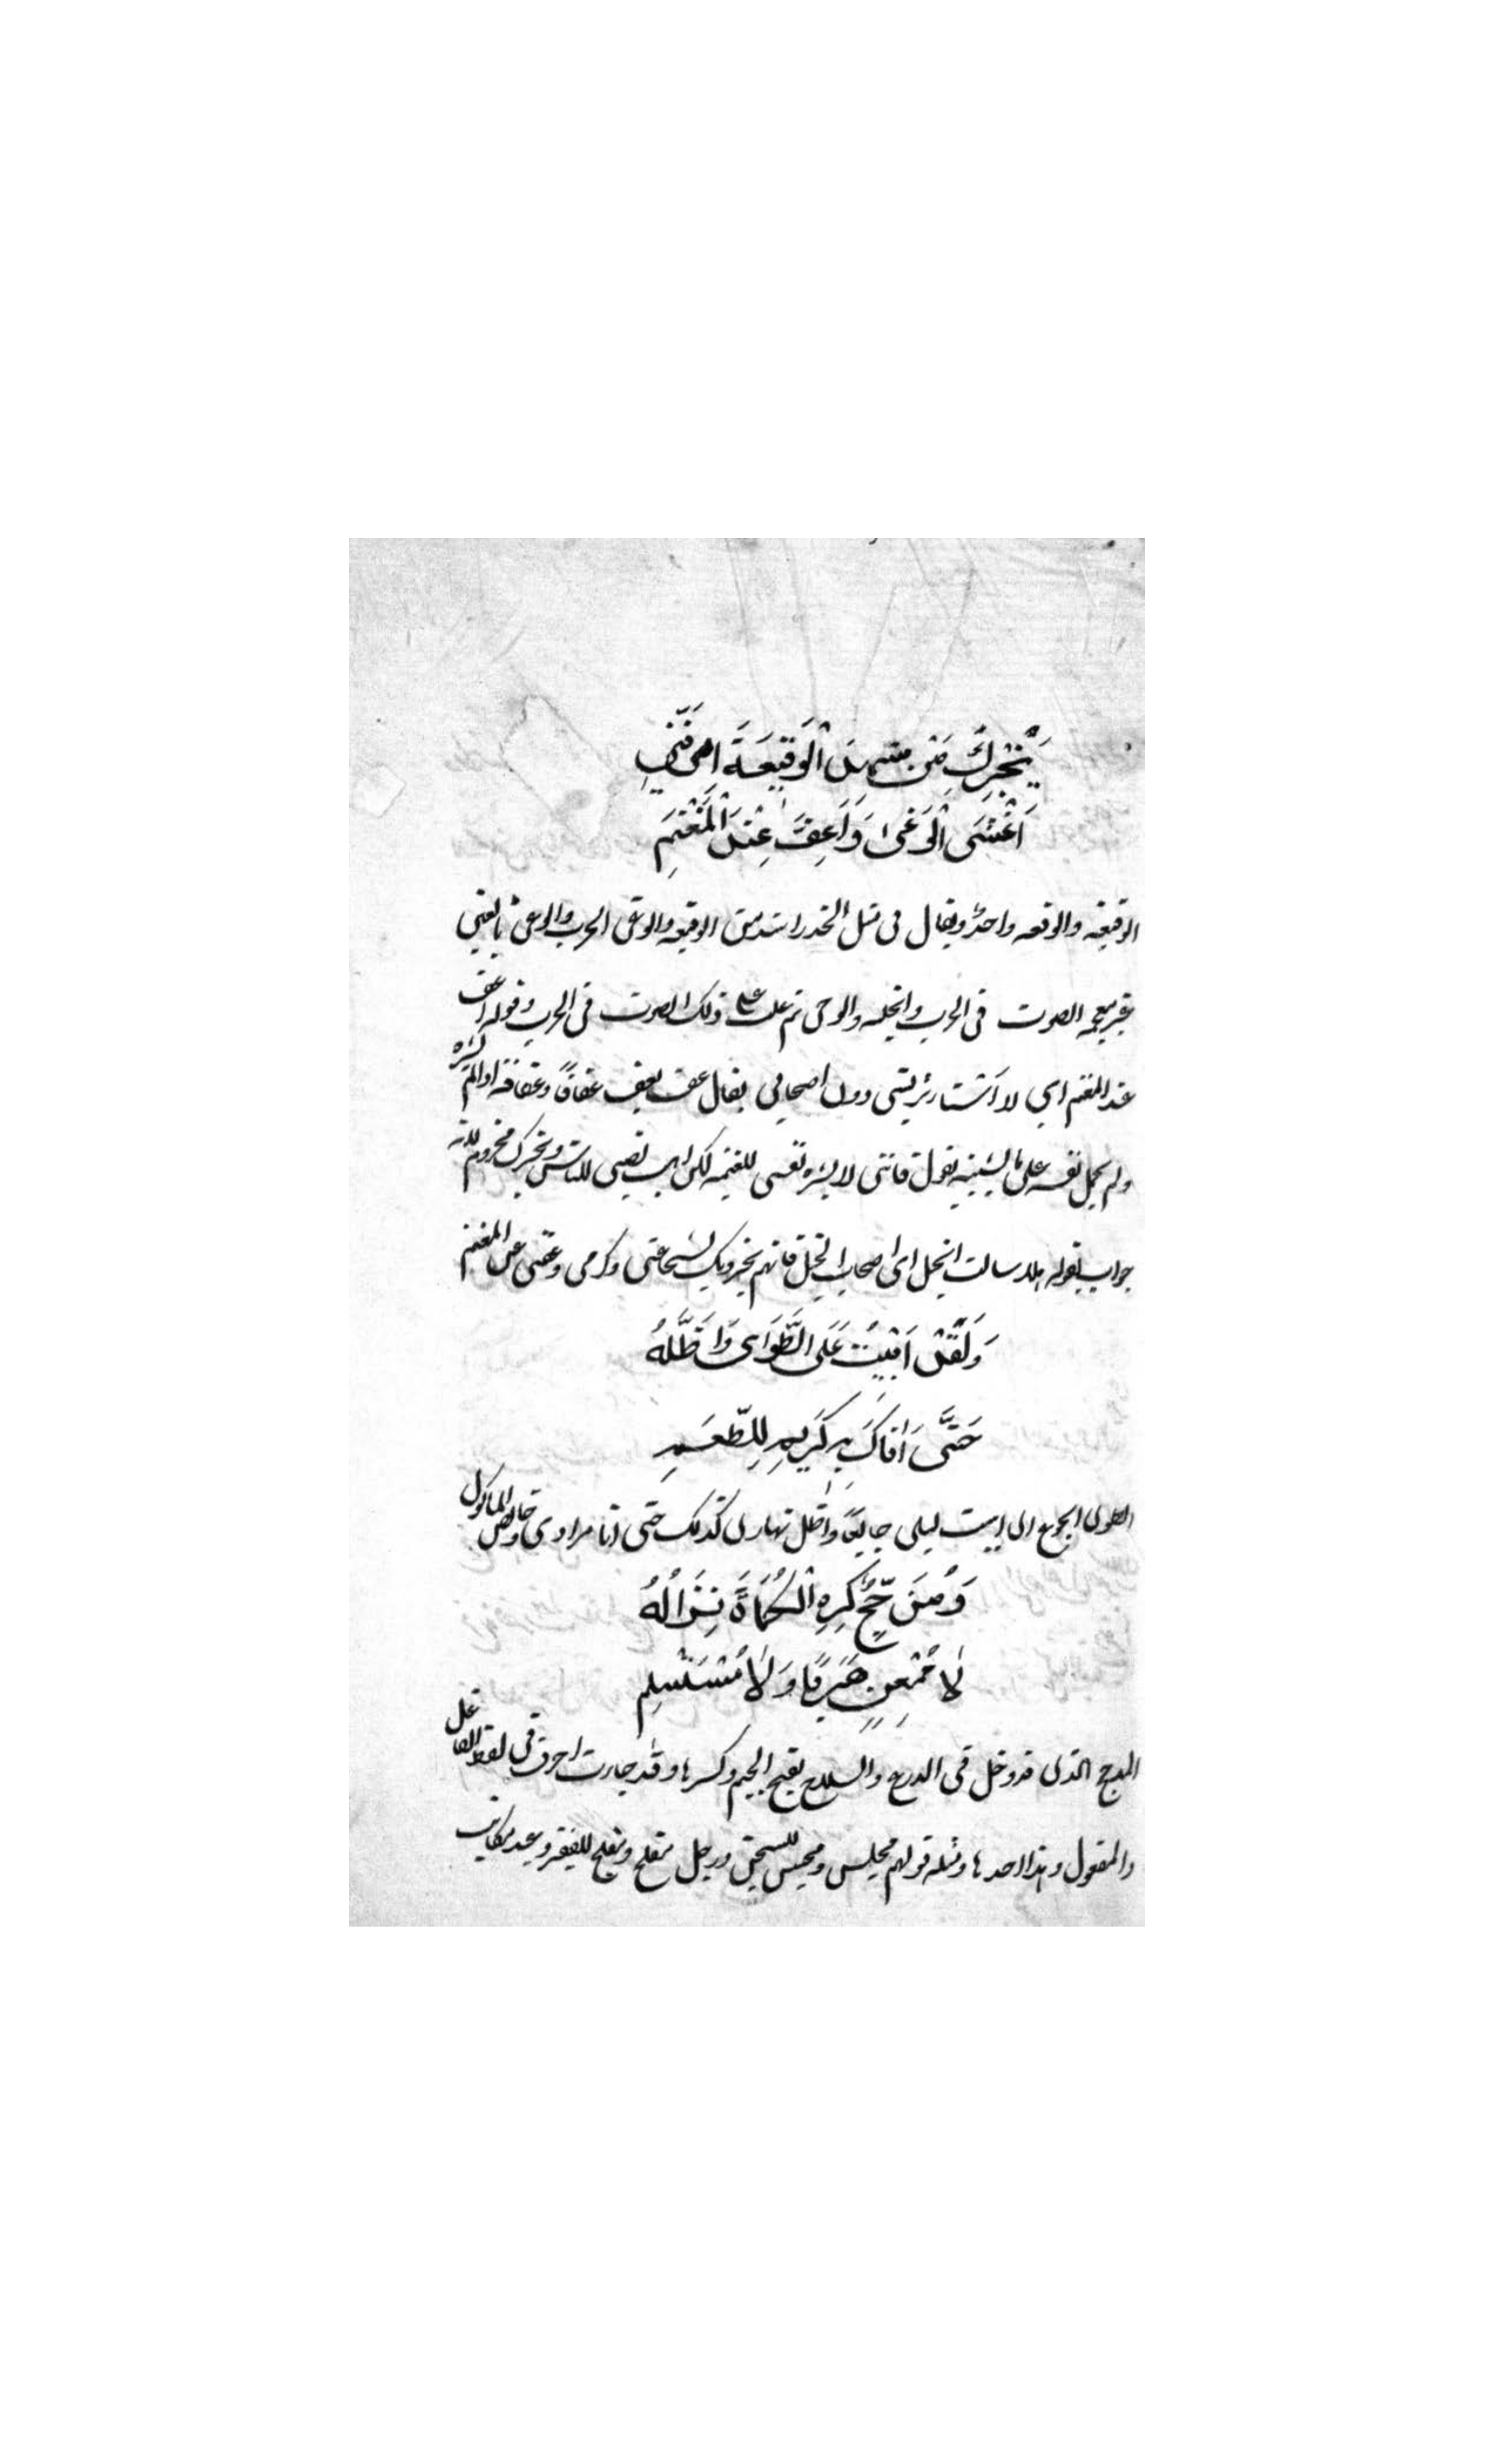 يُخْبِرْكَ مَنْ شهد الْوَقِيعَةَ اننى
اَغْشَى الْوَغَى وَاَعِفُّ عِنْدَ الْمَغْنَمِ
الوقيعه والوقعه واحد ويقال فى مثل الحذر اشد من الوقيعه والوغى الحرب والوعى بالعين
غير معجمه الصوت فى الحرب والجلبه والوحى ثم غلب على ذلك الصوت فى الحرب وقوله اعف
عند المغنم اي لا اَستاثر بشى دون اصحابى يقال عف يعف عفافًا وعفافة اذا لم يشره
ولم يحمل نفسه على ما يشينه يقول فانني لا يشره نفسى للغنيمه لكن اهب نصيبى للناس ويخبرك مجزوم لانه
جواب لقوله هلا سالت الخيل اى اصحاب الخيل فانهم يخبرونك بشجاعتى وكرمى وعفتى عن المغنم
وَلَقَدْ اَبِيْتُ عَلَى الطَّوَاى وَاَظَلُّهُ
حَتَّى اَنَالَ بِهِ كَرِيمِ الطَّعَمِ
الطوى الجوع اى ابيت ليلى جايعًا واظل نهارى كذلك حتى انا مرادى وخالص الماكول
وَمُدَجَّجٍ كَرِهِ الْكُمَاةُ نِزَالَهُ
لَا مُمْعِنٍ هَرَبًا وَلَا مُسْتَسْلِمِ
المدجج الذى قد دخل فى الدرع والسلاح بفتح الجيم وكسرها وقد جاءت احرف فى لفظ الفاعل
والمفعول وهذا احدها ومثله قولهم مخلس ومحبس للسجن ورجل مفلج ومفلج للفقير وعبد مكاتب